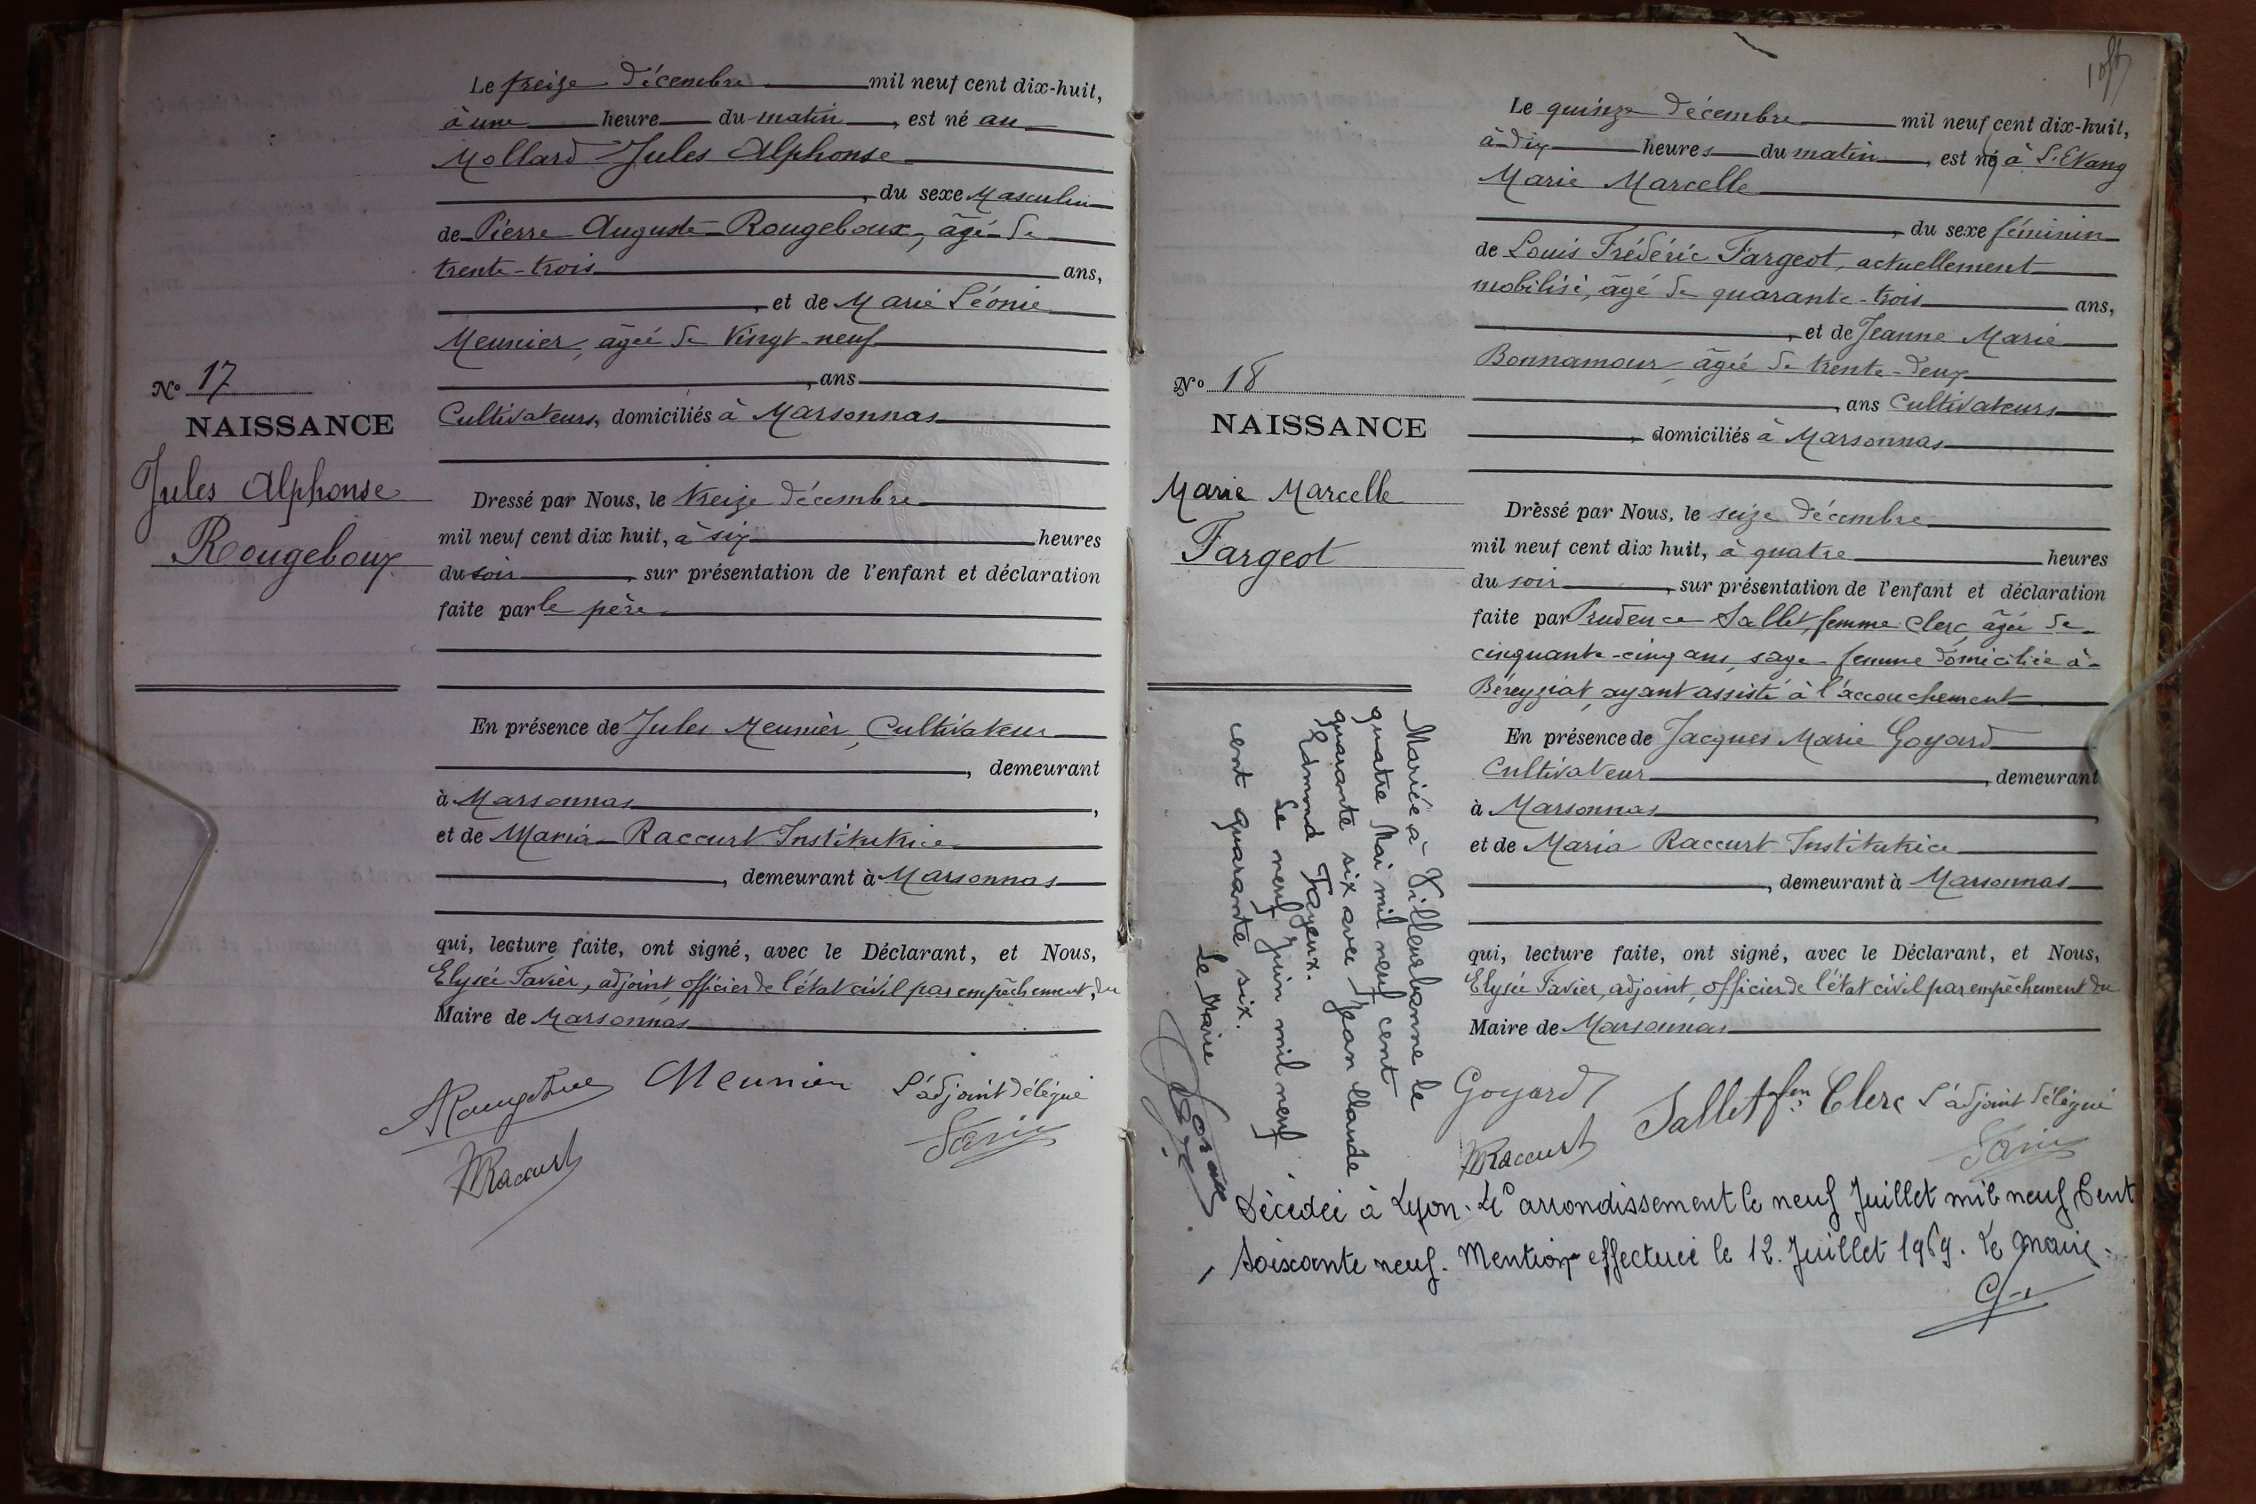 Le treize décembre mil neuf cent dix-huit,
à une heure du matin, est né au
Mollard Jules Alphonse
, du sexe Masculin
de Pierre Auguste Rougeboux, âgé de
trente-trois ans,
, et de Marie Léonie
Meunier, âgée de Vingt-neuf
, ans
Cultivateurs, domiciliés à Marsonnas
No 17
NAISSANCE
Jules Alphonse
Rougeboux
Dressé par Nous, le treize décembre
mil neuf cent dix huit, à six heures
du soir, sur présentation de l'enfant et déclaration
faite par le père
En présence de Jules Meunier, Cultivateur
, demeurant
à Marsonnas,
et de Maria Raccurt Institutrice
, demeurant à Marsonnas
qui, lecture faite, ont signé, avec le Déclarant, et Nous,
Elysée Favier, adjoint, officier de l'état civil par empêchement, du
Maire de Marsonnas
ARougeboux Meunier L'adjoint délégué
MRaccurt Favier
Le quinze décembre mil neuf cent dix-huit,
à dix heures du matin, est né à L'Etang
Marie Marcelle
, du sexe féminin
de Louis Frédéric Fargeot, actuellement
mobilisé, âgé de quarante-trois ans,
, et de Jeanne Marie
Bonnamour, âgée de trente-deux
, ans Cultivateurs
, domiciliés à Marsonnas
No 18
NAISSANCE
Marie Marcelle
Fargeot
Dressé par Nous, le seize décembre
mil neuf cent dix huit, à quatre heures
du soir, sur présentation de l'enfant et déclaration
faite par Prudence Sallet, femme Clerc, âgée de
cinquante-cinq ans, sage-femme domiciliée à
Béreyziat, ayant assisté à l'accouchement
En présence de Jacques Marie Goyard
Cultivateur, demeurant
à Marsonnas
et de Maria Raccurt Institutrice
, demeurant à Marsonnas
qui, lecture faite, ont signé, avec le Déclarant, et Nous,
Elysée Favier, adjoint, officier de l'état civil par empêchement du
Maire de Marsonnas
Goyard Sallet fm Clerc L'adjoint délégué
MRaccurt Favier
Mariée à Villeurbanne le
quatre Mai mil neuf cent
quarante six avec Jean Claude
Edmond Fayeux.
Le neuf juin mil neuf
cent quarante six.
Le Maire
Décédée à Lyon. 4e arrondissement le neuf Juillet mil neuf Cent
soixante neuf. Mention effectuée le 12. Juillet 1969. Le Maire.